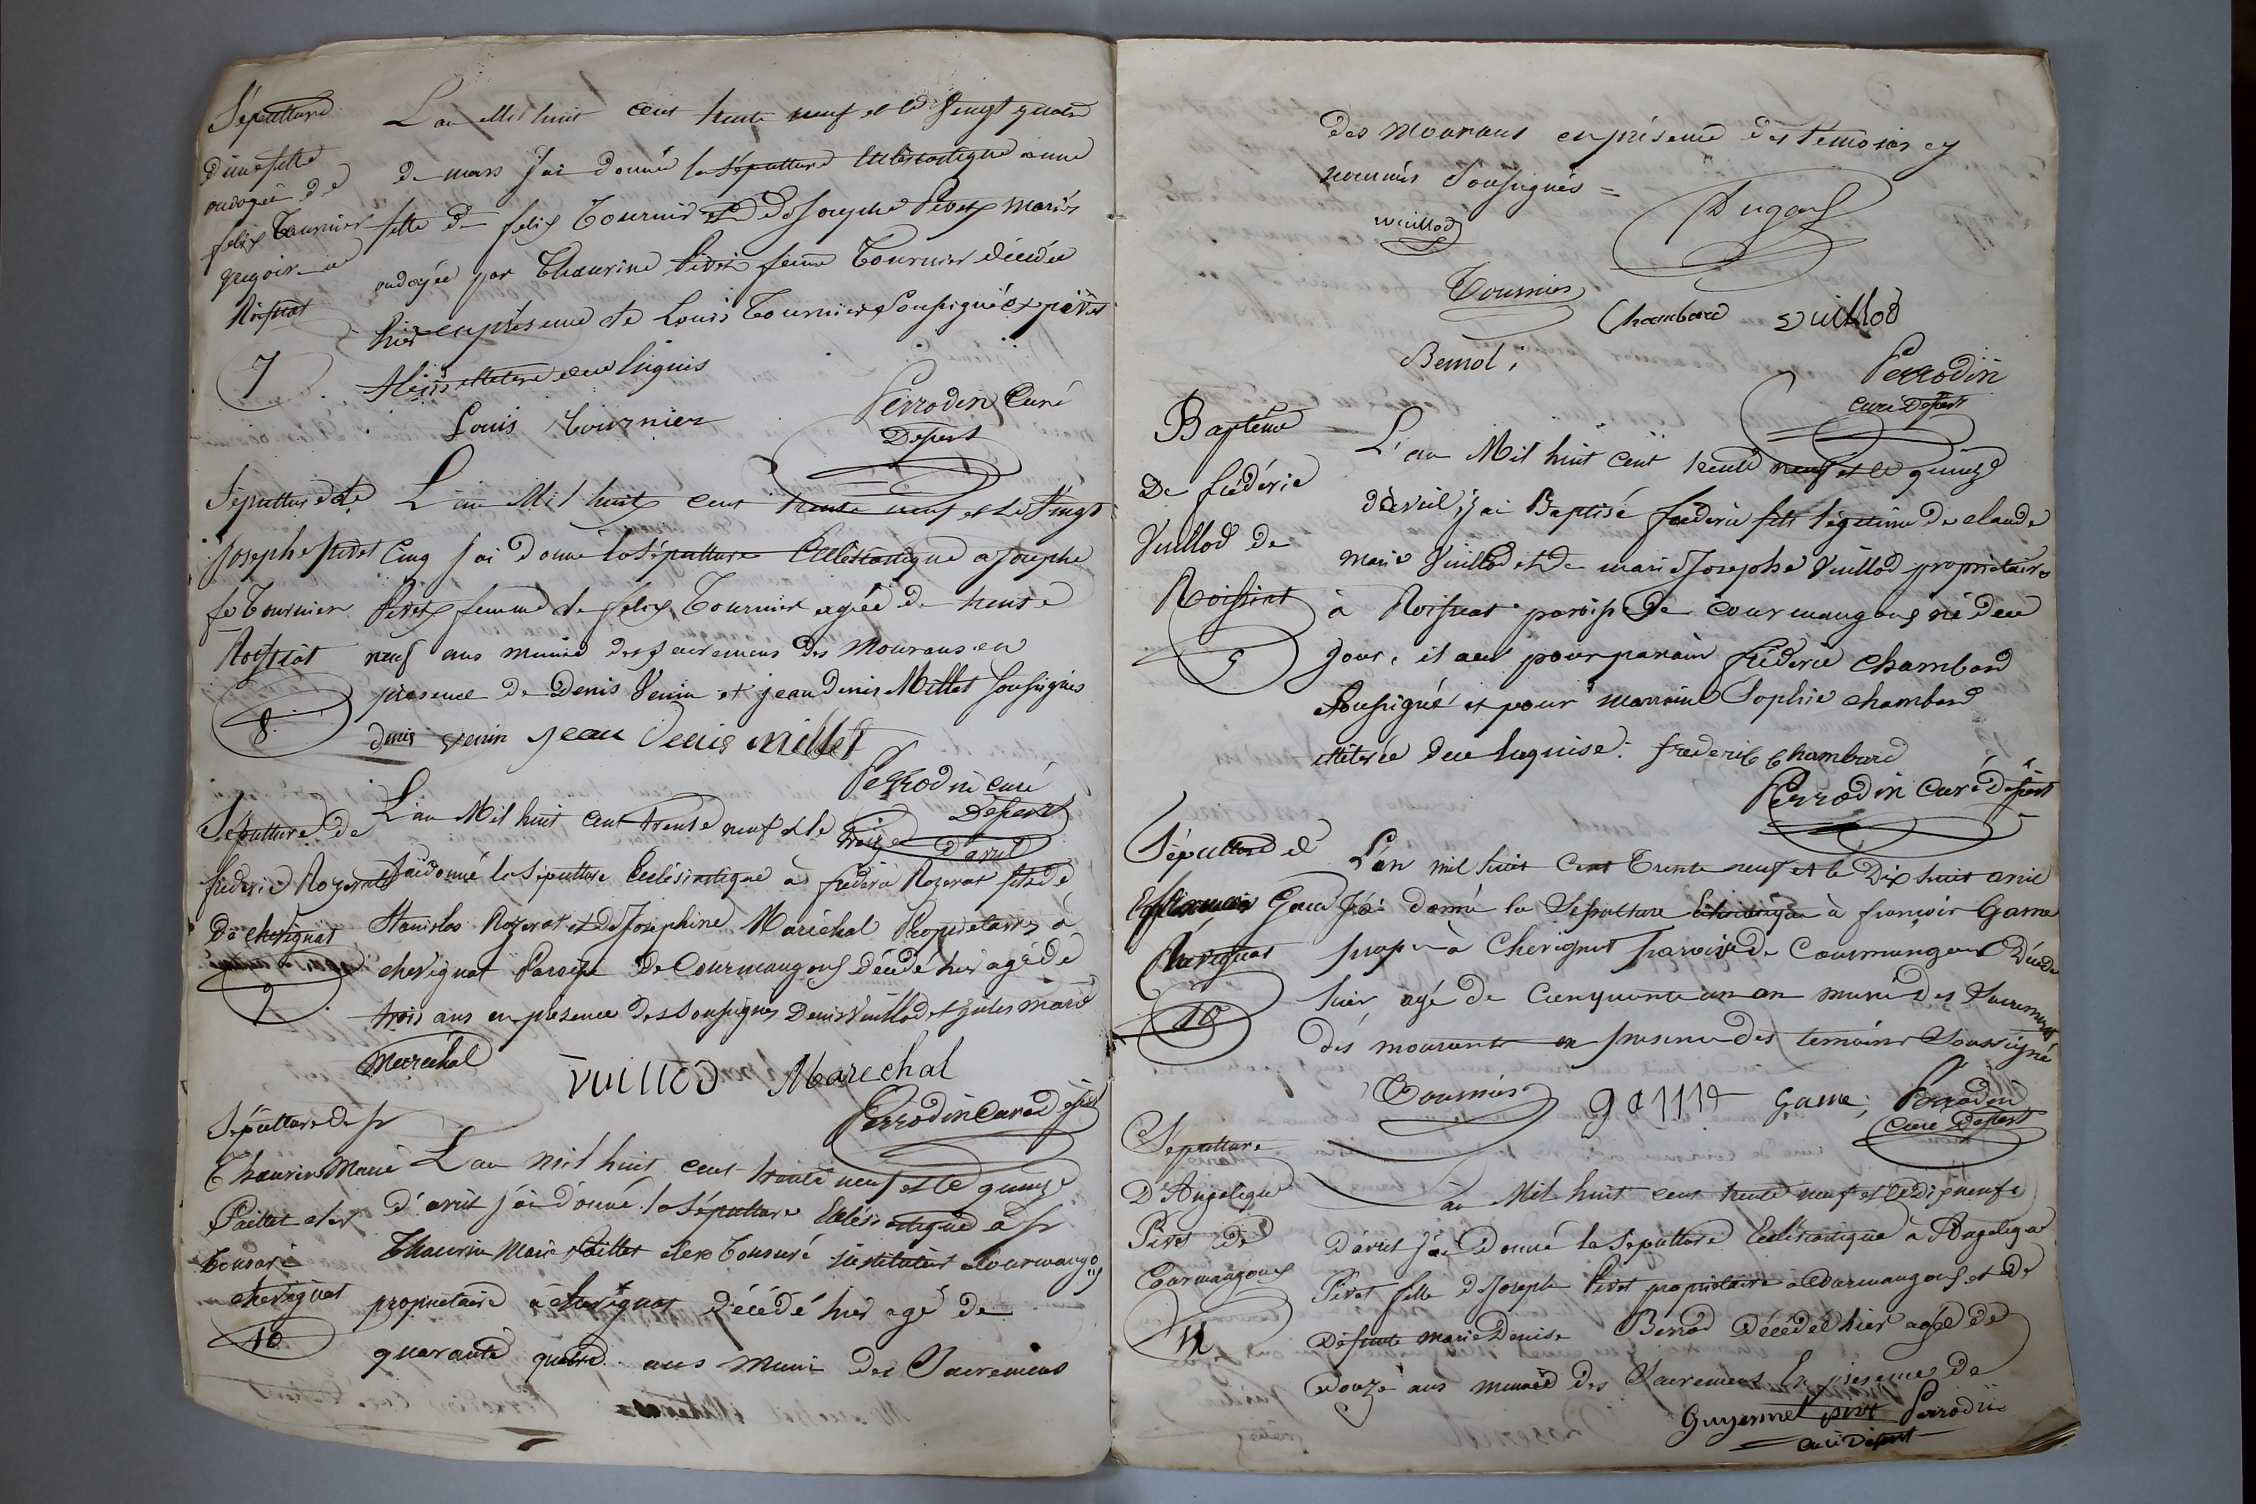 Sépulture
d'une fille
ondoyée de
felix Tournier
gregoire a
Roissiat
7
L'an Mil huit cent trente neuf et le Vingt quatre
de mars j'ai donné la sépulture Ecclésiastique a une
fille de felix Tournier et de Josephe Pivet mariés
ondoyée par Thaurine Pivet femme Tournier décédée
hier en présence de Louis Tournier Soussigné et pivet
Alexis illeteré de ce enquis
Louis Tournier
Perrodin Curé
Desert
Sépulture de
Josephe pivet
fe Tournier
Roissiat
8
L'an Mil huit cent trente neuf et le Vingt
Cinq j'ai donné la Sépulture Ecclésiastique a Josephe
Pivet femme de felix Tournier agée de trente
neuf ans munie des sacremens des Mourans en
présence de Denis Venin et jean denis Millet soussignés
denis venin jean Denis millet
Perrodin curé
Desert
Sépulture de
frederic Rozerat
De chevignat
9
L'an Mil huit cent trente neuf et le trois d'avril
J'ai donné la Sépulture Ecclésiastique à frederic Rozerat fils de
Stanislas Rozerat et de Josephine Maréchal Propriétaires à
chevignat Paroisse De Courmangoux Décédé hier agé de
trois ans en présence des soussignés Denis Vuillod et jules marie
Maréchal
vuillod Marechal
Perrodin Curé desert
Sépulture de sr
Thaurin Marie
Paillet clerc
tonsuré
chevignat
10
L'an mil huit cent trente neuf et le quinze
d'avril j'ai donné la Sépulture Ecclésiastique à sr
Thaurin Marie Paillet clerc Tonsuré instituteur a Courmangoux
propriétaire à chevignat Décédé hier agé de
quarante quatre ans muni des Sacremens
des mourans en présence des témoins cy
nommés Soussignés =
vuillod
Dugas
Tournier
Chambard vuillod
Bernol
Perrodin
curé Desert
Baptême
De fréderic
Vuillod de
Roissiat
5
L'an Mil huit cent trente neuf et le quinze
d'avril, j'ai Baptisé frederic fils légitime De claude
Marie Vuillod et De marie Josephe Vuillod propriétaires
à Roissiat paroisse De courmangoux né de ce
jour, il a eu pour parain fréderic Chambard
soussigné et pour marraine Sophie chambard
illeterée de ce enquise. frederic Chambard
Perrodin Curé Desert
Sépulture de
françois Game
Chevignat
10
L'an mil huit Cent Trente neuf et le Dix huit avril
J'ai donné la Sépulture Eclesiastique à françois Game
propre à Chevignat paroisse de Courmangoux Décédé
hier agé de Cinquante un an muni des Sacrements
dés mourants en présence des temoins Soussigné
Tournier game Game, Perrodin
Curé Desert
Sépulture
D'Angelique
Pivet de
Courmangoux
11
L'an Mil huit cent trente neuf et le dix neuf
D'avril j'ai Donné la Sépulture Ecclésiastique à Angelique
Pivet fille de Joseph Pivet propriétaire a Courmangoux et de
Défunte Marie Denise Berrod Décédée hier agée de
douze ans munie des Sacremens En présence de
Guyennet pivet Perrodin
curé Desert